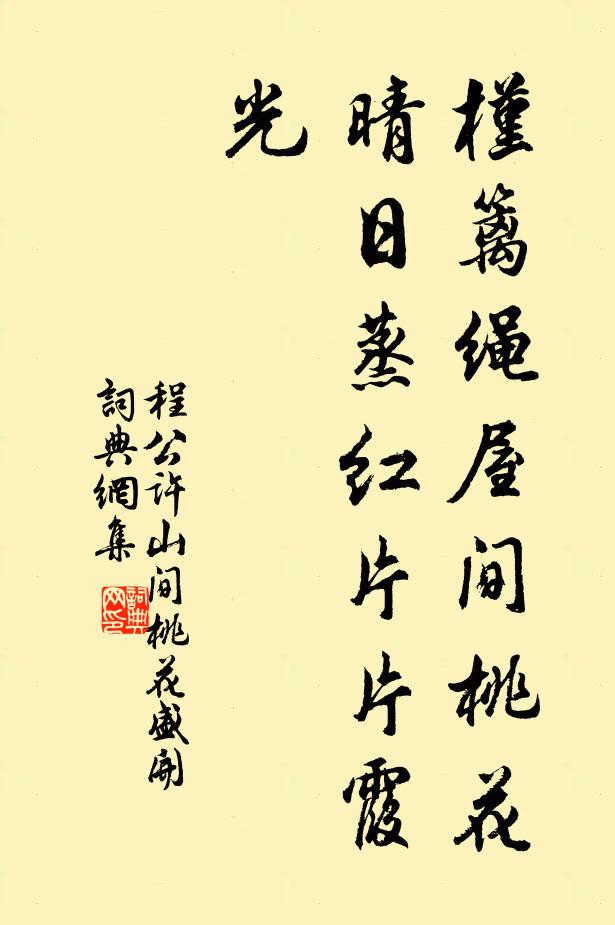 槿篱绳屋间桃花
晴日蒸红片片霞
光
程公许山间桃花盛开
詞典網集
詞典
网印